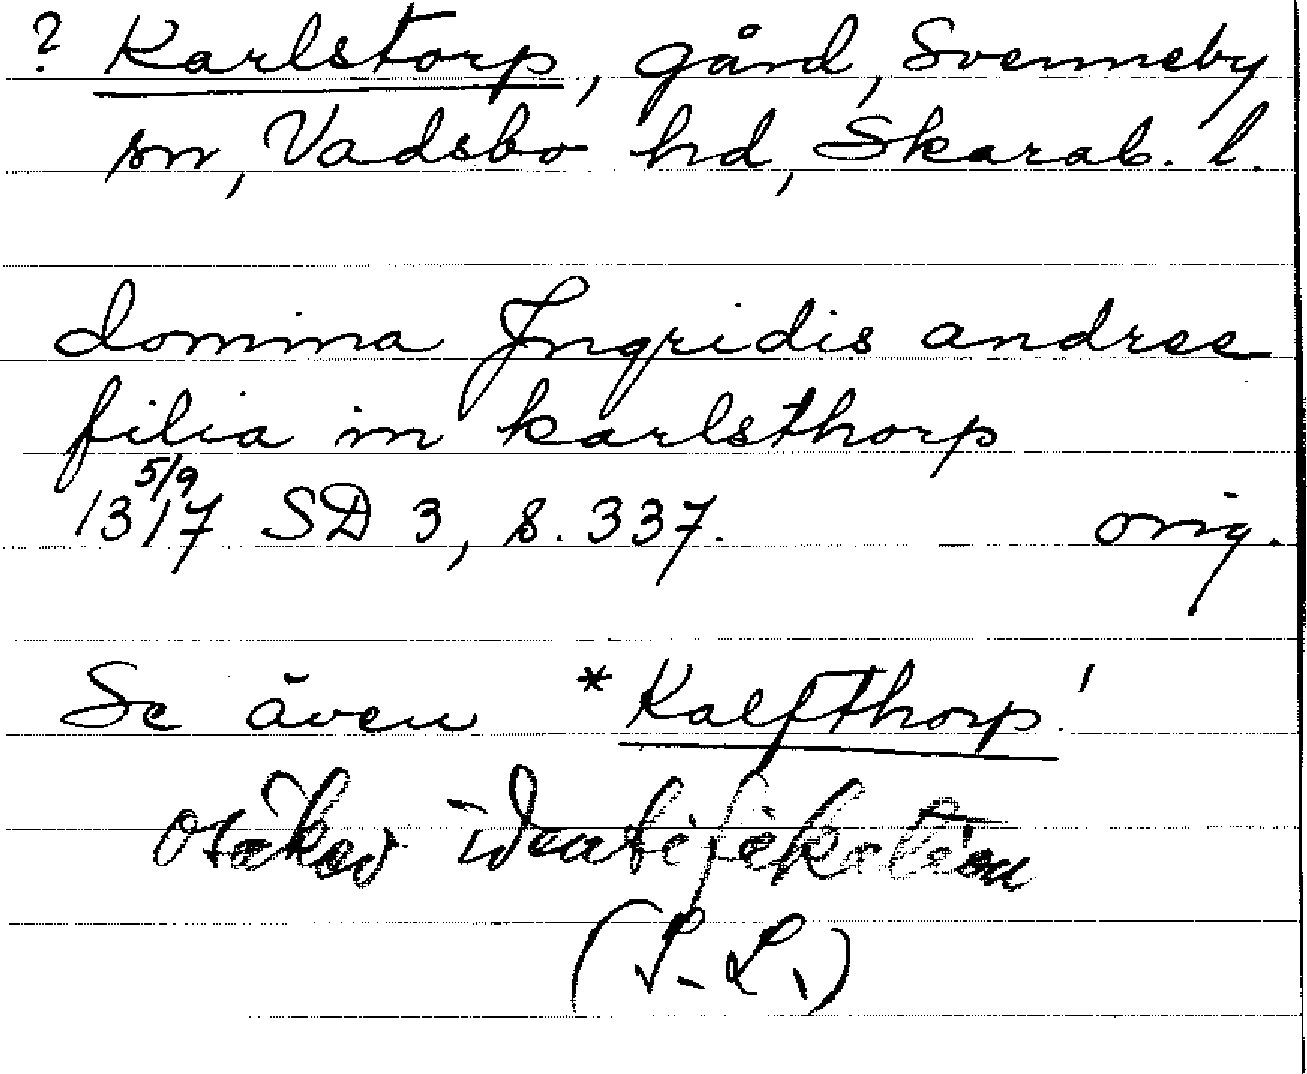 ? Karlstorp, gård, Svenneby
sn, Vadsbo hd, Skarab. l.
domina Jngridis andree
filia in karlsthorp
13 5/9 17 SD 3, s. 337. orig.
Se även *Kalfthorp!
osäker identifikation